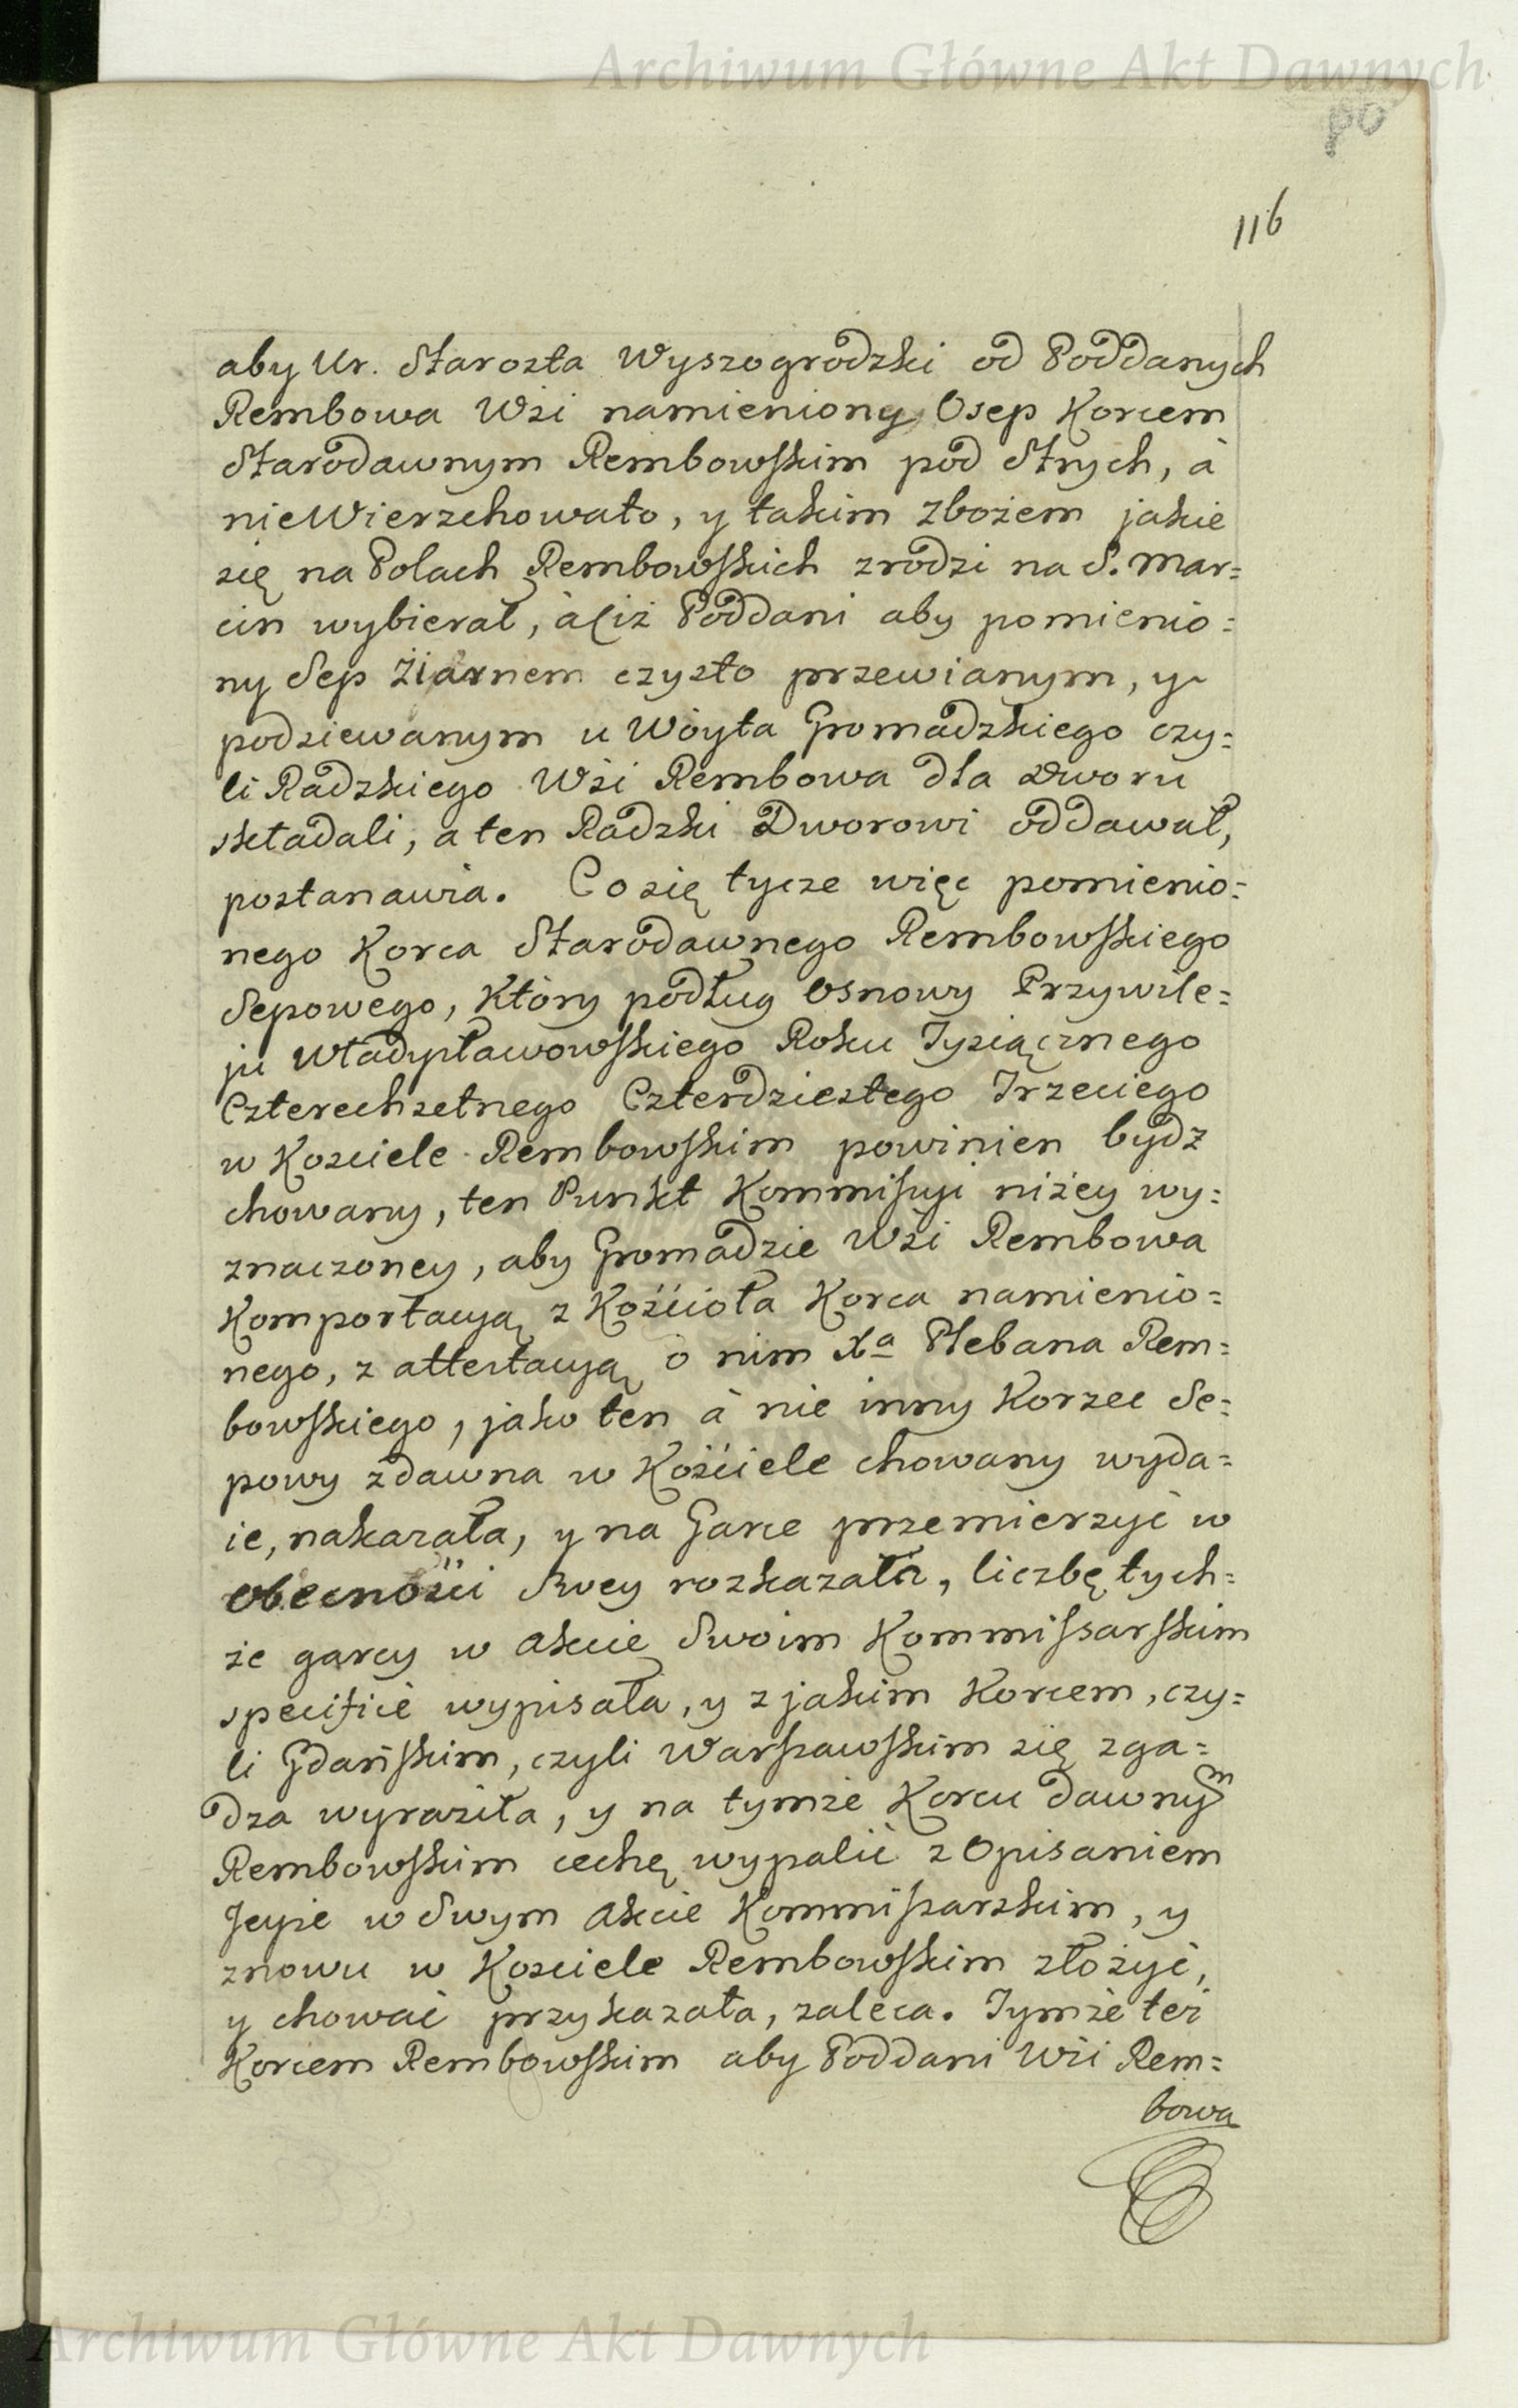 Archiwum Główne Akt Dawnych
po
116
aby Ur. Starosta Wyszogrodzki od Poddanych
Rembowa Wsi namieniony Osep Korcem
Starodawnym Rembowskim pod Strych, à
nie Wierzchowato, y takim zbożem jakie
się na Polach Rembowskich zrodzi na S. Mar=
cin wybierał, à ciż Poddani aby pomienio=
ny Sep Ziarnem czysto przewianym, y
podsiewanym u Woyta Gromadzkiego czy=
li Radzkiego Wsi Rembowa dla Dworu
składali, a ten Radzki Dworowi oddawał,
postanawia. Co się tycze więc pomienio=
nego Korca Starodawnego Rembowskiego
Sepowego, Który podług Osnowy Przywile=
ju Władysławowskiego Roku Tysiącznego
Czterechsetnego Czterdziestego Trzeciego
w Kosciele Rembowskim powinien bydz
chowany, ten Punkt Kommissyi niżey wy=
znaczoney, aby Gromadzie Wsi Rembowa
Komportacyą z Kościoła Korca namienio=
nego, z attestacyą o nim Xa Plebana Rem=
bowskiego, jako ten à nie inny Korzec Se=
powy zdawna w Kościele chowany wyda=
ie, nakazała, y na Garce przemierzyć w
obecności Swey rozkazała, liczbę tych=
że garcy w Akcie Swoim Kommissarskim
specifice wypisała, y z jakim Korcem, czy=
li Gdańskim, czyli Warszawskim się zga=
dza wyraziła, y na tymże Korcu dawnym
Rembowskim cechę wypalić z Opisaniem
Jeyże w Swym Akcie Kommissarskim, y
znowu w Kosciele Rembowskim złożyć,
y chować przykazała, zaleca. Tymże też
Korcem Rembowskim aby Poddani Wsi Rem=
bowa
Archiwum Główne Akt Dawnych